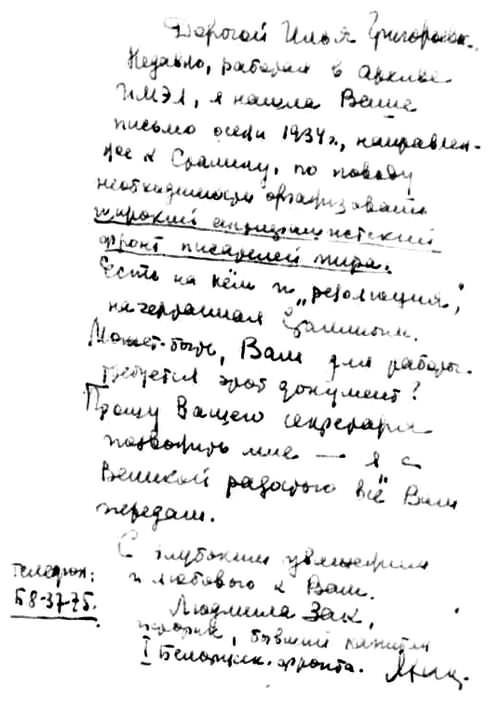 Дорогой Илья Григорьевич.
Недавно, работая в Архиве
ИМЭЛ, я нашла Ваше
письмо осени 1934 г., направлен-
ное к Сталину, по поводу
необходимости организовать
широкий антифашистский
фронт писателей мира.
Есть на нём и „резолюция",
начертанная Сталиным.
Может быть, Вам для работы
требуется этот документ?
Прошу Вашего секретаря
позвонить мне — я с
великой радостью всё Вам
передам.
С глубоким уважением
и любовью к Вам.
Людмила Зак,
историк, бывший капитан
I Белорусск. фронта.
Телефон:
Б 8-37-75.